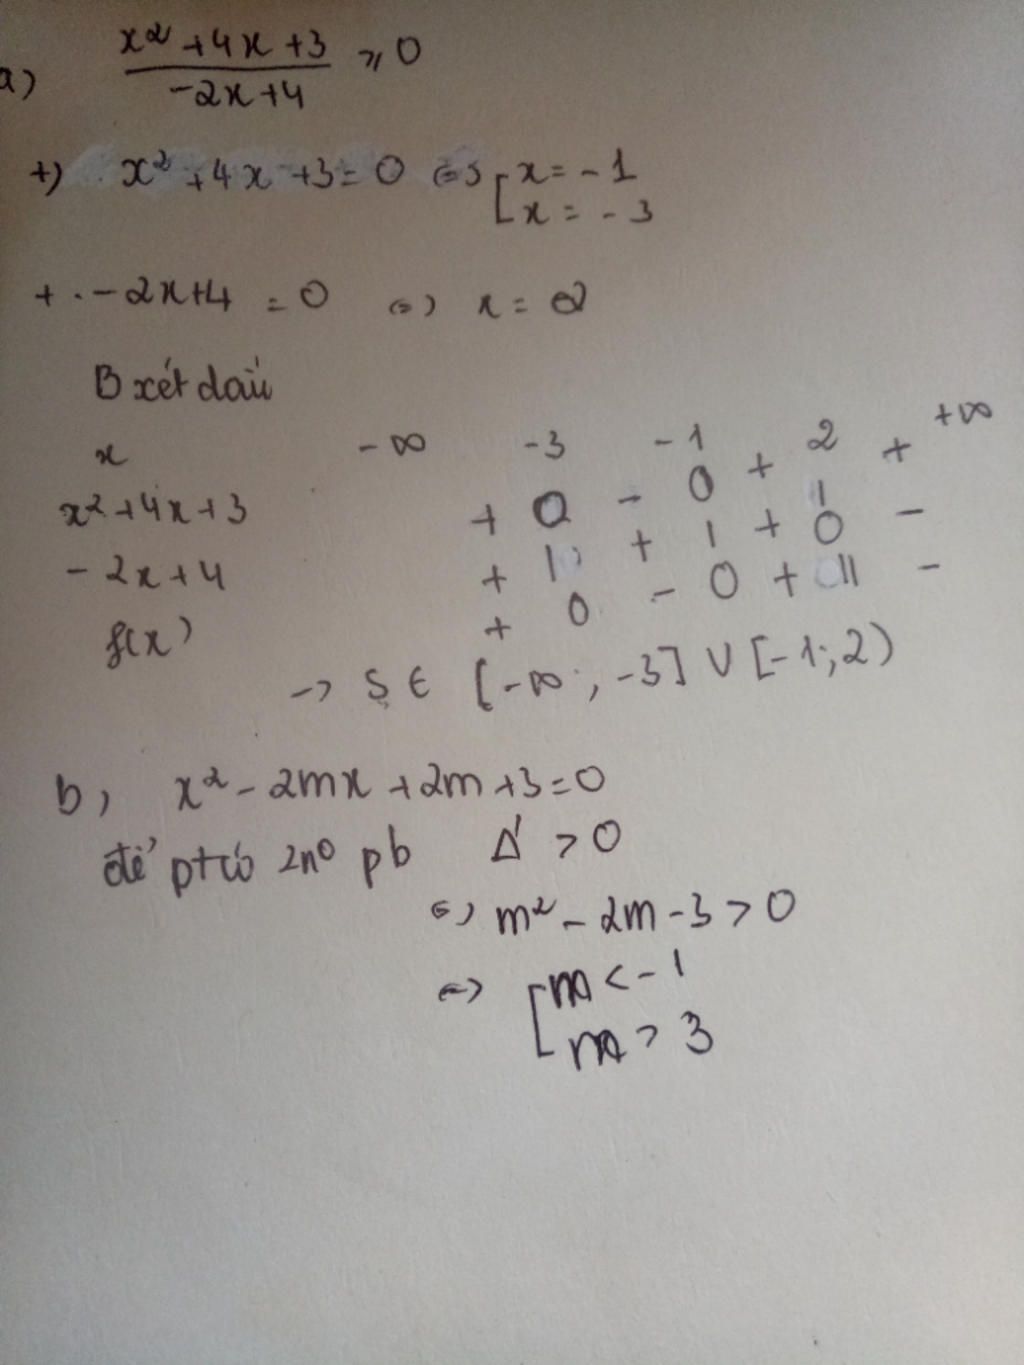 a) \frac{x² + 4x + 3}{-2x + 4} ≥ 0
+) x² + 4x + 3 = 0 <=> [ x = -1
x = -3
+ . -2x+4 = 0 <=> x = 2
B xét dấu
x -∞ -3 -1 2 +∞
x² + 4x + 3 + 0 - 0 + | +
- 2x + 4 + | + | + 0 -
f(x) + 0 - 0 + || -
-> S ∈ [-∞; -3] ∪ [-1; 2)
b, x² - 2mx + 2m + 3 = 0
để pt có 2n⁰ pb Δ' > 0
<=> m² - 2m - 3 > 0
<=> [ m < -1
m > 3